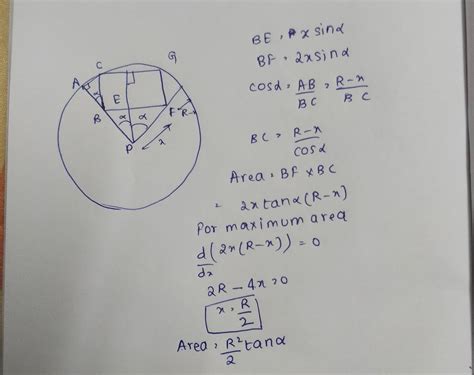 C
G
A
E
B
α
α
F
R-x
P
x
BE = x sinα
BF = 2x sinα
cosα = AB/BC = R-x/BC
BC = R-x/cosα
Area = BF × BC
= 2x tanα(R-x)
For maximum area
d/dx (2x(R-x)) = 0
2R - 4x = 0
x = R/2
Area = R²/2 tanα